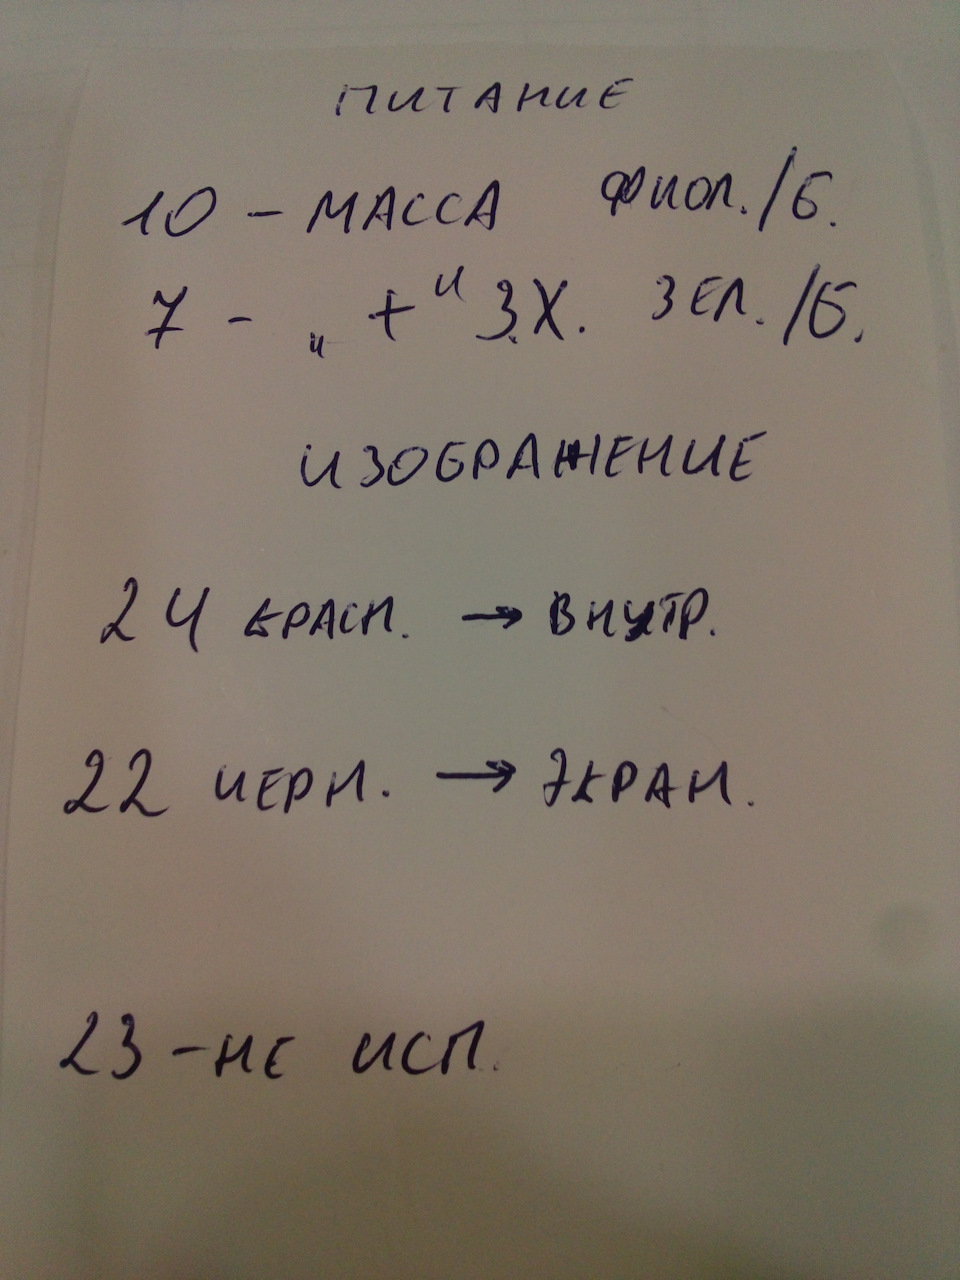 ПИТАНИЕ
10 - МАССА ФИОЛ./Б.
7 - „+" З.Х. ЗЕЛ./Б.
ИЗОБРАЖЕНИЕ
24 КРАСН. → ВНУТР.
22 ЧЕРН. → ЭКРАН.
23 - НЕ ИСП.